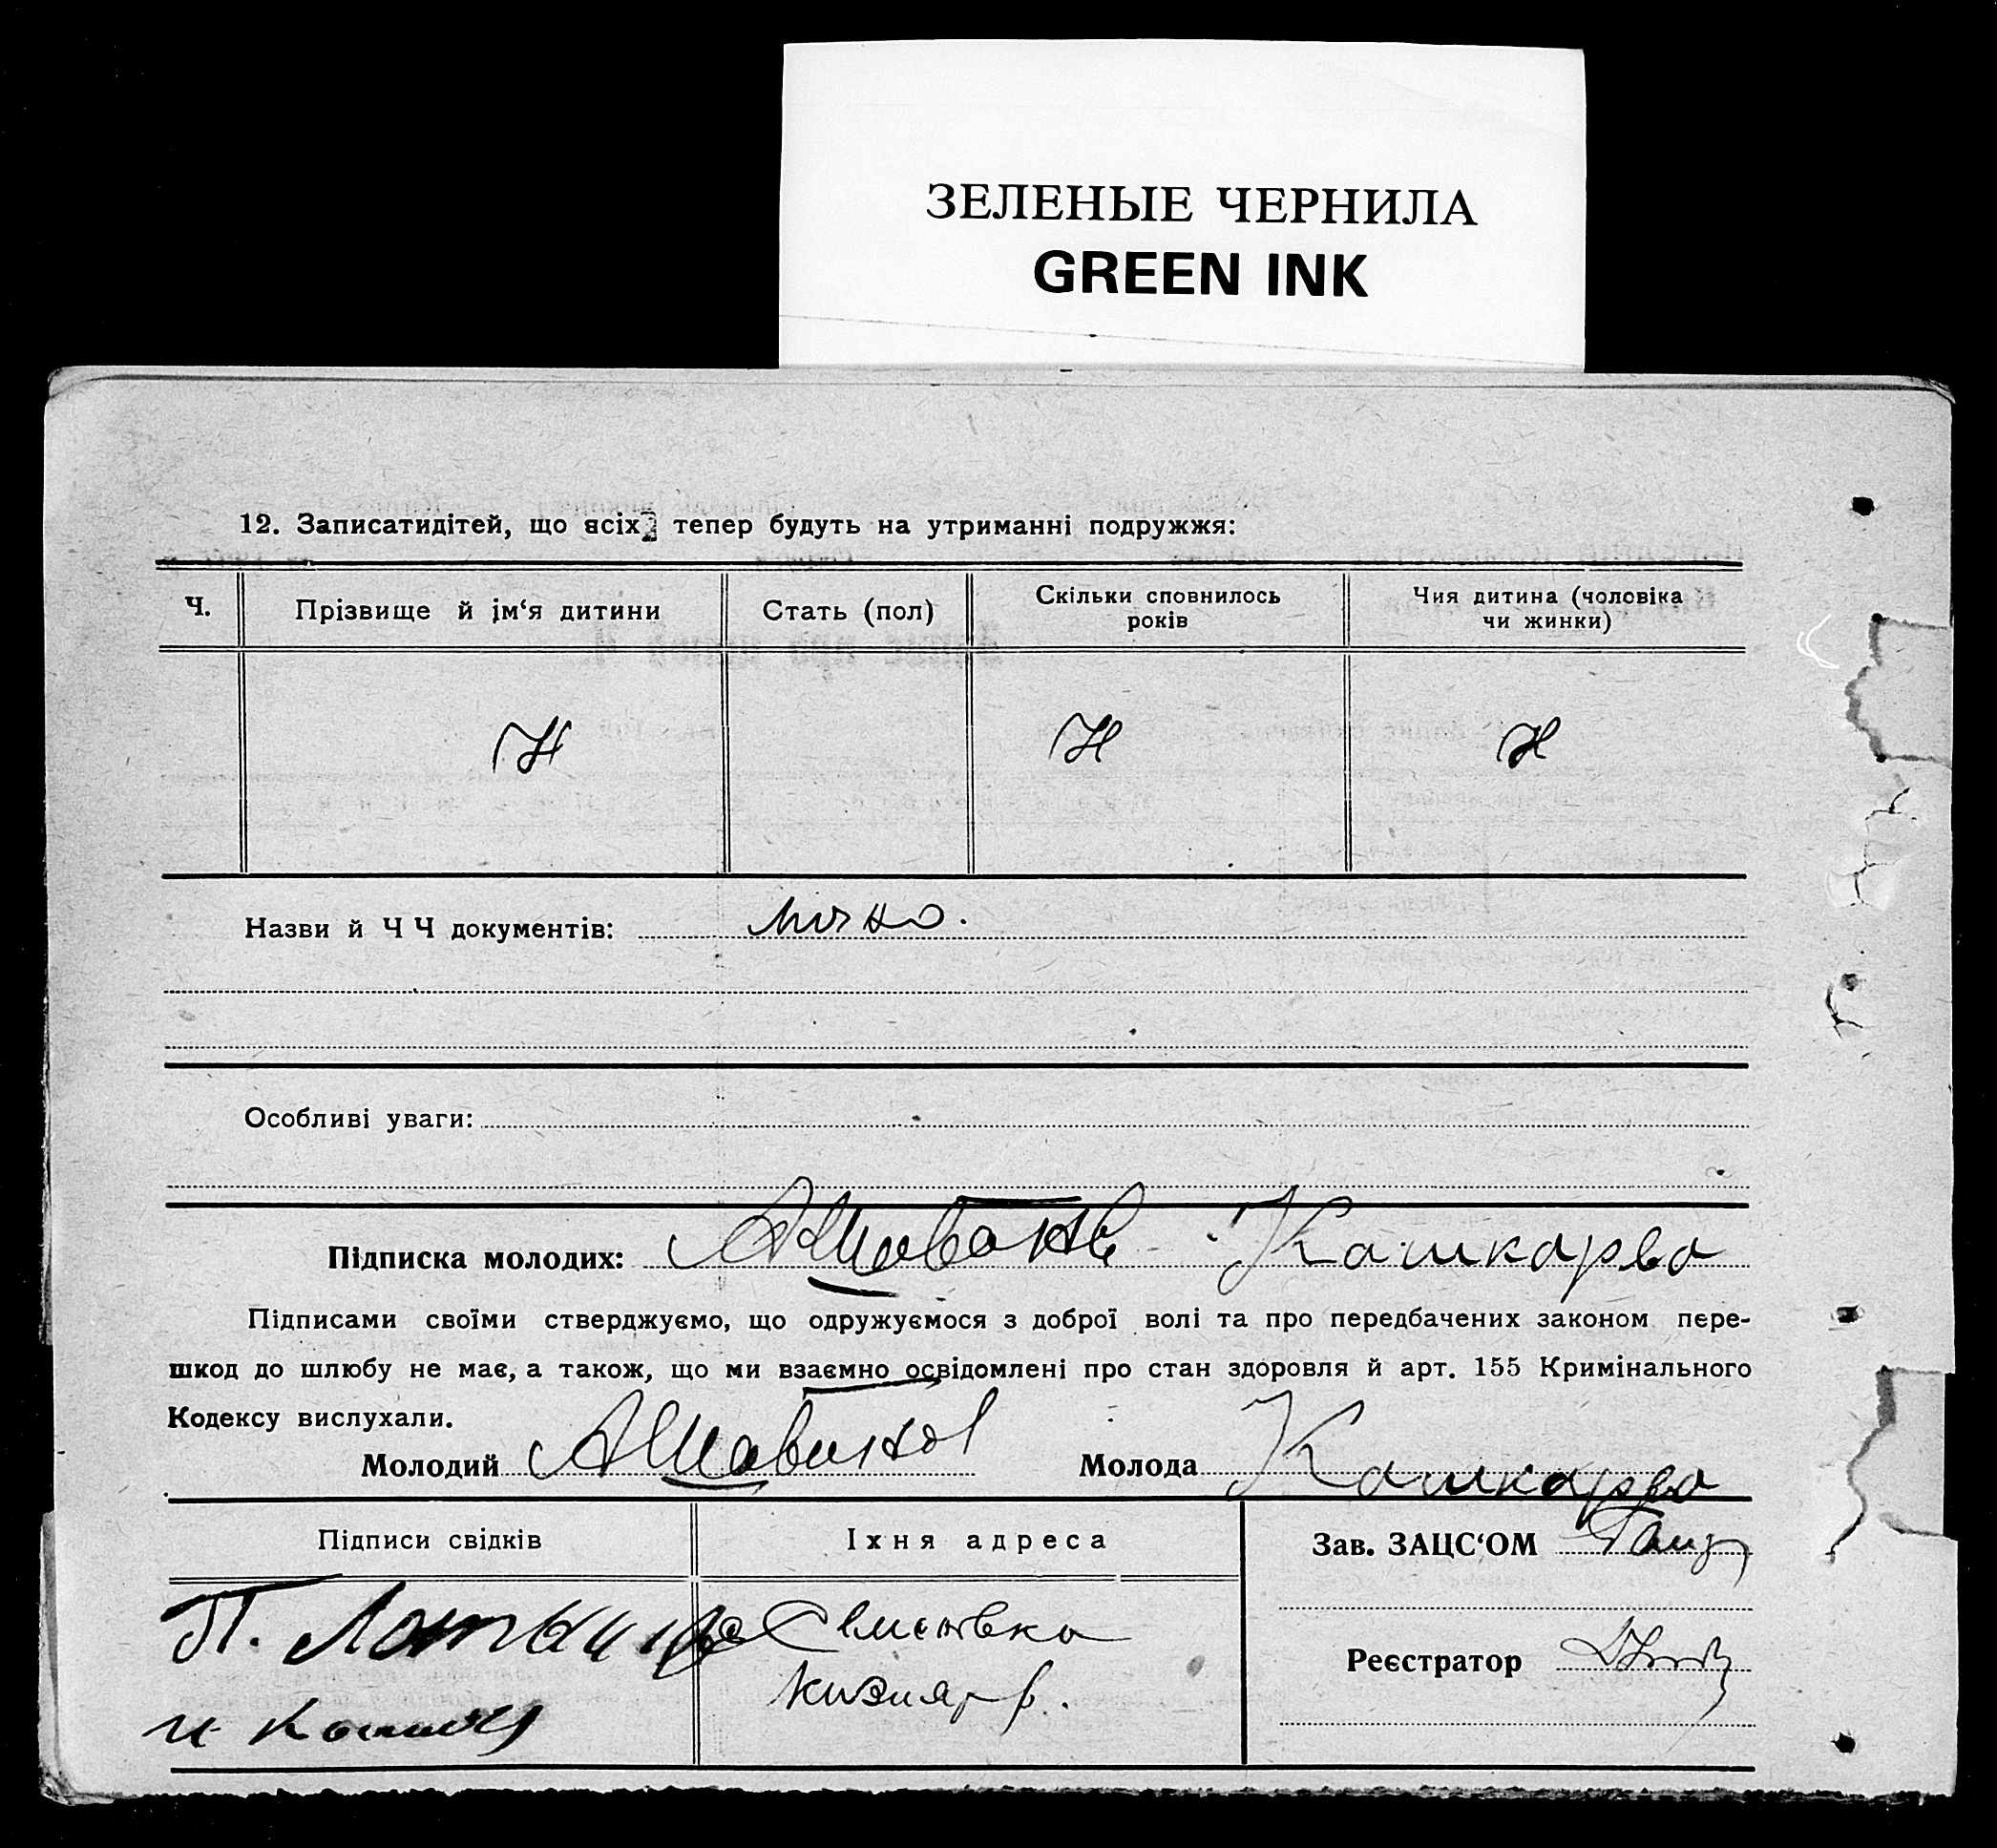 ЗЕЛЕНЫЕ ЧЕРНИЛА
GREEN INK
12. Записатидітей, що всіх тепер будуть на утриманні подружжя:
Ч. Прізвище й ім‘я дитини Стать (пол) Скільки сповнилось років Чия дитина (чоловіка чи жинки)
Н Н Н
Назви й Ч Ч документів:
Особливі уваги:
Підписка молодих: Кашкарва
Підписами своїми стверджуємо, що одружуємося з доброї волі та про передбачених законом пере-
шкод до шлюбу не має, а також, що ми взаємно освідомлені про стан здоровля й арт. 155 Кримінального
Кодексу вислухали.
Молодий Молода Кашкарва
Підписи свідків Їхня адреса Зав. ЗАЦС‘ОМ
П.
Реєстратор